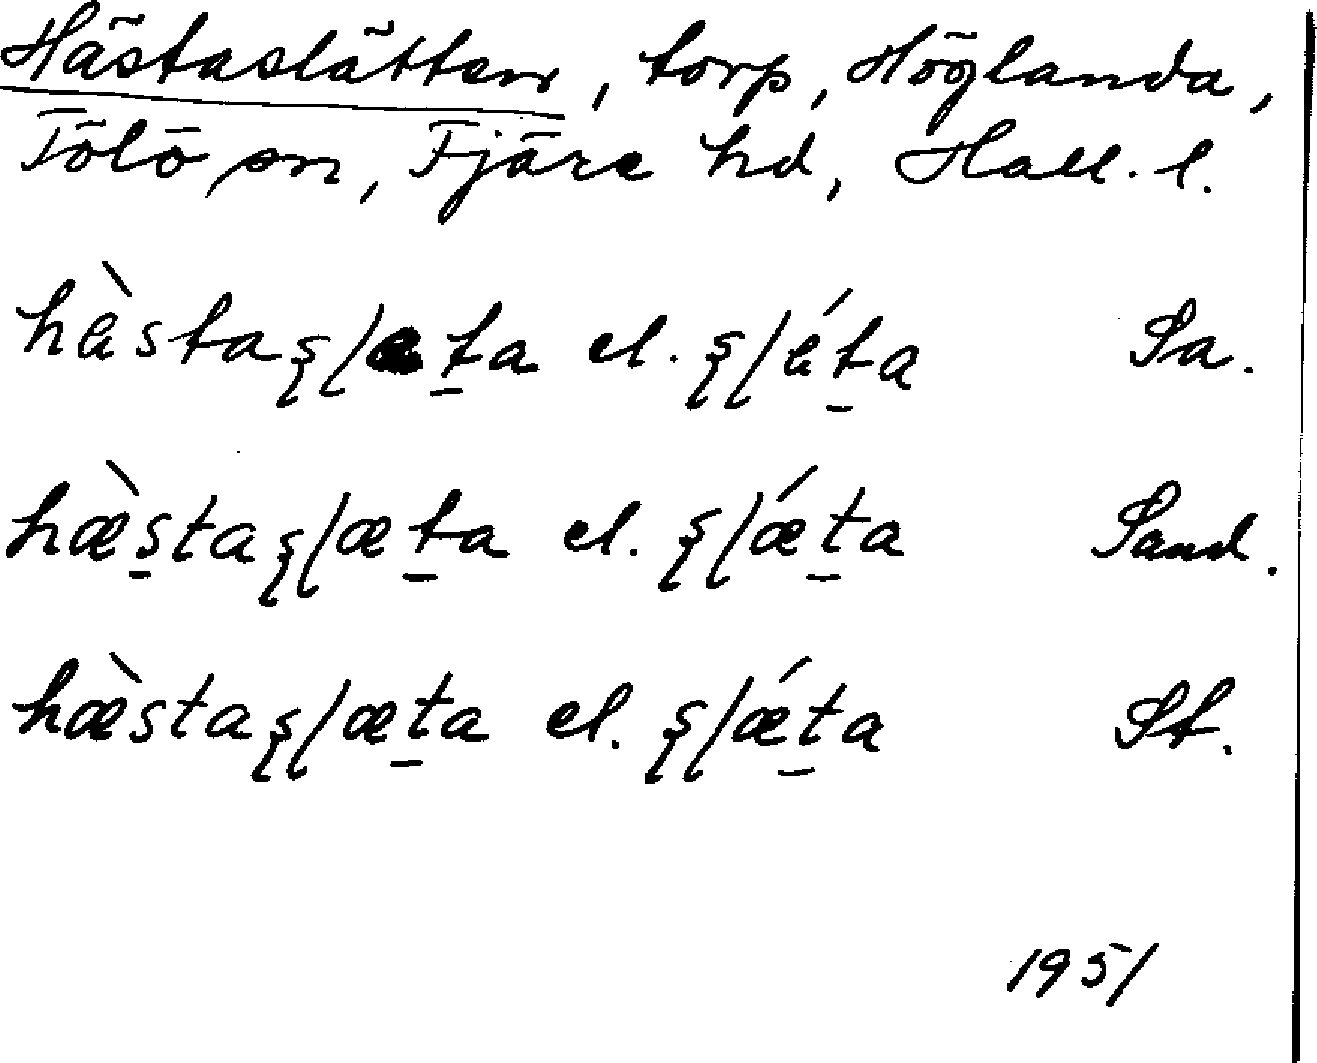 Hästaslätten, torp, Höglanda,
Tölö sn, Fjäre hd, Hall. l.
hàstaʂɭat̠a el. ʂɭát̠a Sa.
hæ̀s̠taʂɭæt̠a el. ʂɭǽt̠a Sand.
hæ̀staʂɭæt̠a el. ʂɭǽt̠a St.
1951